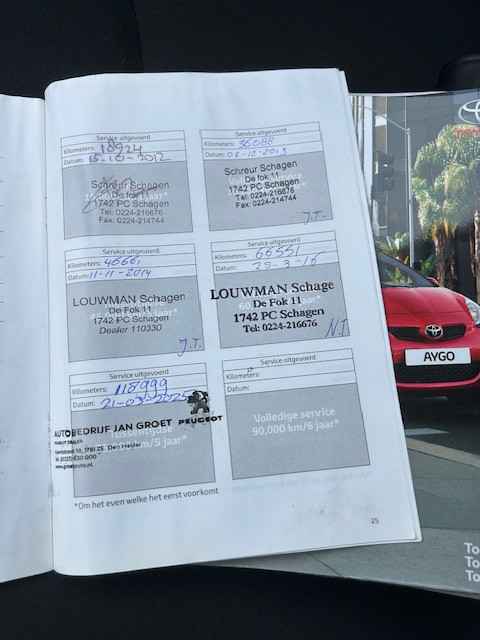 Service uitgevoerd
Kilometers: 18924
Datum: 15-10-2012
Schreur Schagen
De fok 11
1742 PC Schagen
Tel: 0224-216676
Fax: 0224-214744
Service uitgevoerd
Kilometers: 36088
Datum:
Schreur Schagen
De fok 11
1742 PC Schagen
Tel: 0224-216676
Fax: 0224-214744
J.T.
Service uitgevoerd
Kilometers:
Datum: 11-11-2014
LOUWMAN Schagen
De Fok 11
1742 PC Schagen
Dealer 110330
J.T.
Service uitgevoerd
Kilometers: 66551
Datum:
LOUWMAN Schage
De Fok 11
1742 PC Schagen
Tel: 0224-216676
N.T.
Service uitgevoerd
Kilometers: 118999
Datum: 21-03-2025
AUTOBEDRIJF JAN GROET PEUGEOT
Den Helder
km/5 jaar*
Service uitgevoerd
Kilometers:
Datum:
Volledige service
90,000 km/6 jaar*
*Om het even welke het eerst voorkomt
25
AYGO
To
To
To